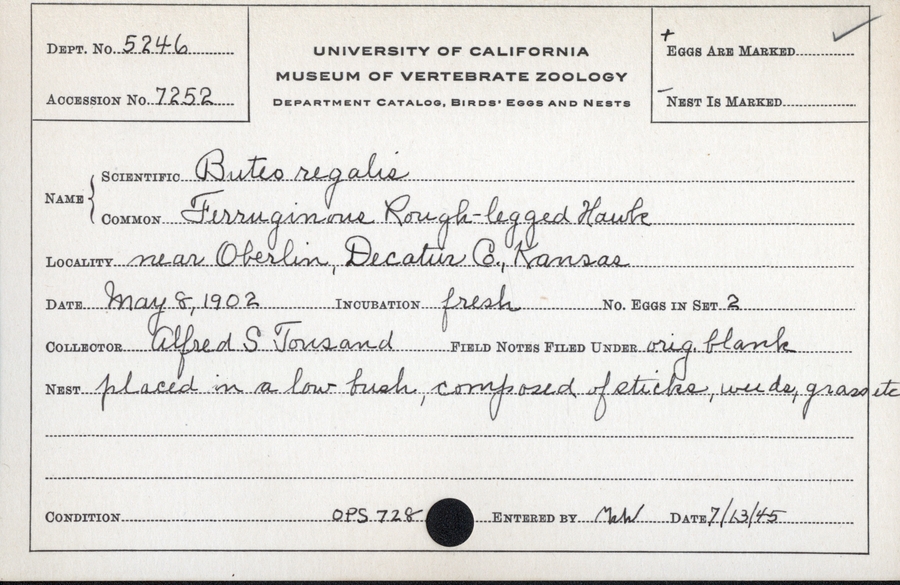 DEPT. NO. 5246
ACCESSION NO. 7252
UNIVERSITY OF CALIFORNIA
MUSEUM OF VERTEBRATE ZOOLOGY
DEPARTMENT CATALOG, BIRDS' EGGS AND NESTS
+ EGGS ARE MARKED
- NEST IS MARKED
NAME { SCIENTIFIC Buteo regalis
COMMON Ferruginous Rough-legged Hawk
LOCALITY near Oberlin, Decatur Co., Kansas
DATE May 8, 1902 INCUBATION fresh NO. EGGS IN SET 2
COLLECTOR Alfred S Tousand FIELD NOTES FILED UNDER orig. blank
NEST placed in a low bush, composed of sticks, weeds, grass etc
CONDITION OPS 728 ENTERED BY DATE 7/13/45